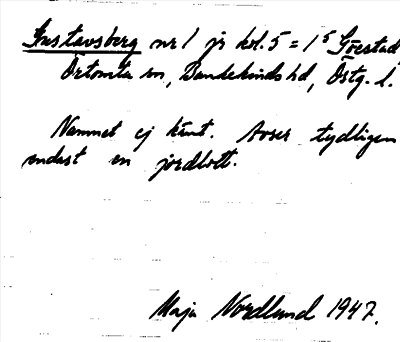 Gustavsberg nr 1 jr kol. 5 = 1⁵ Görstad
Örtomta sn, Bankekinds hd, Östg. l.
Namnet ej känt. Avser tydligen
endast en jordlott.
Maja Nordlund 1947.